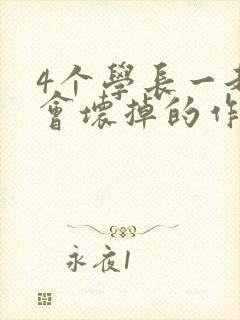 4个學長一
會壞掉的作
永夜1